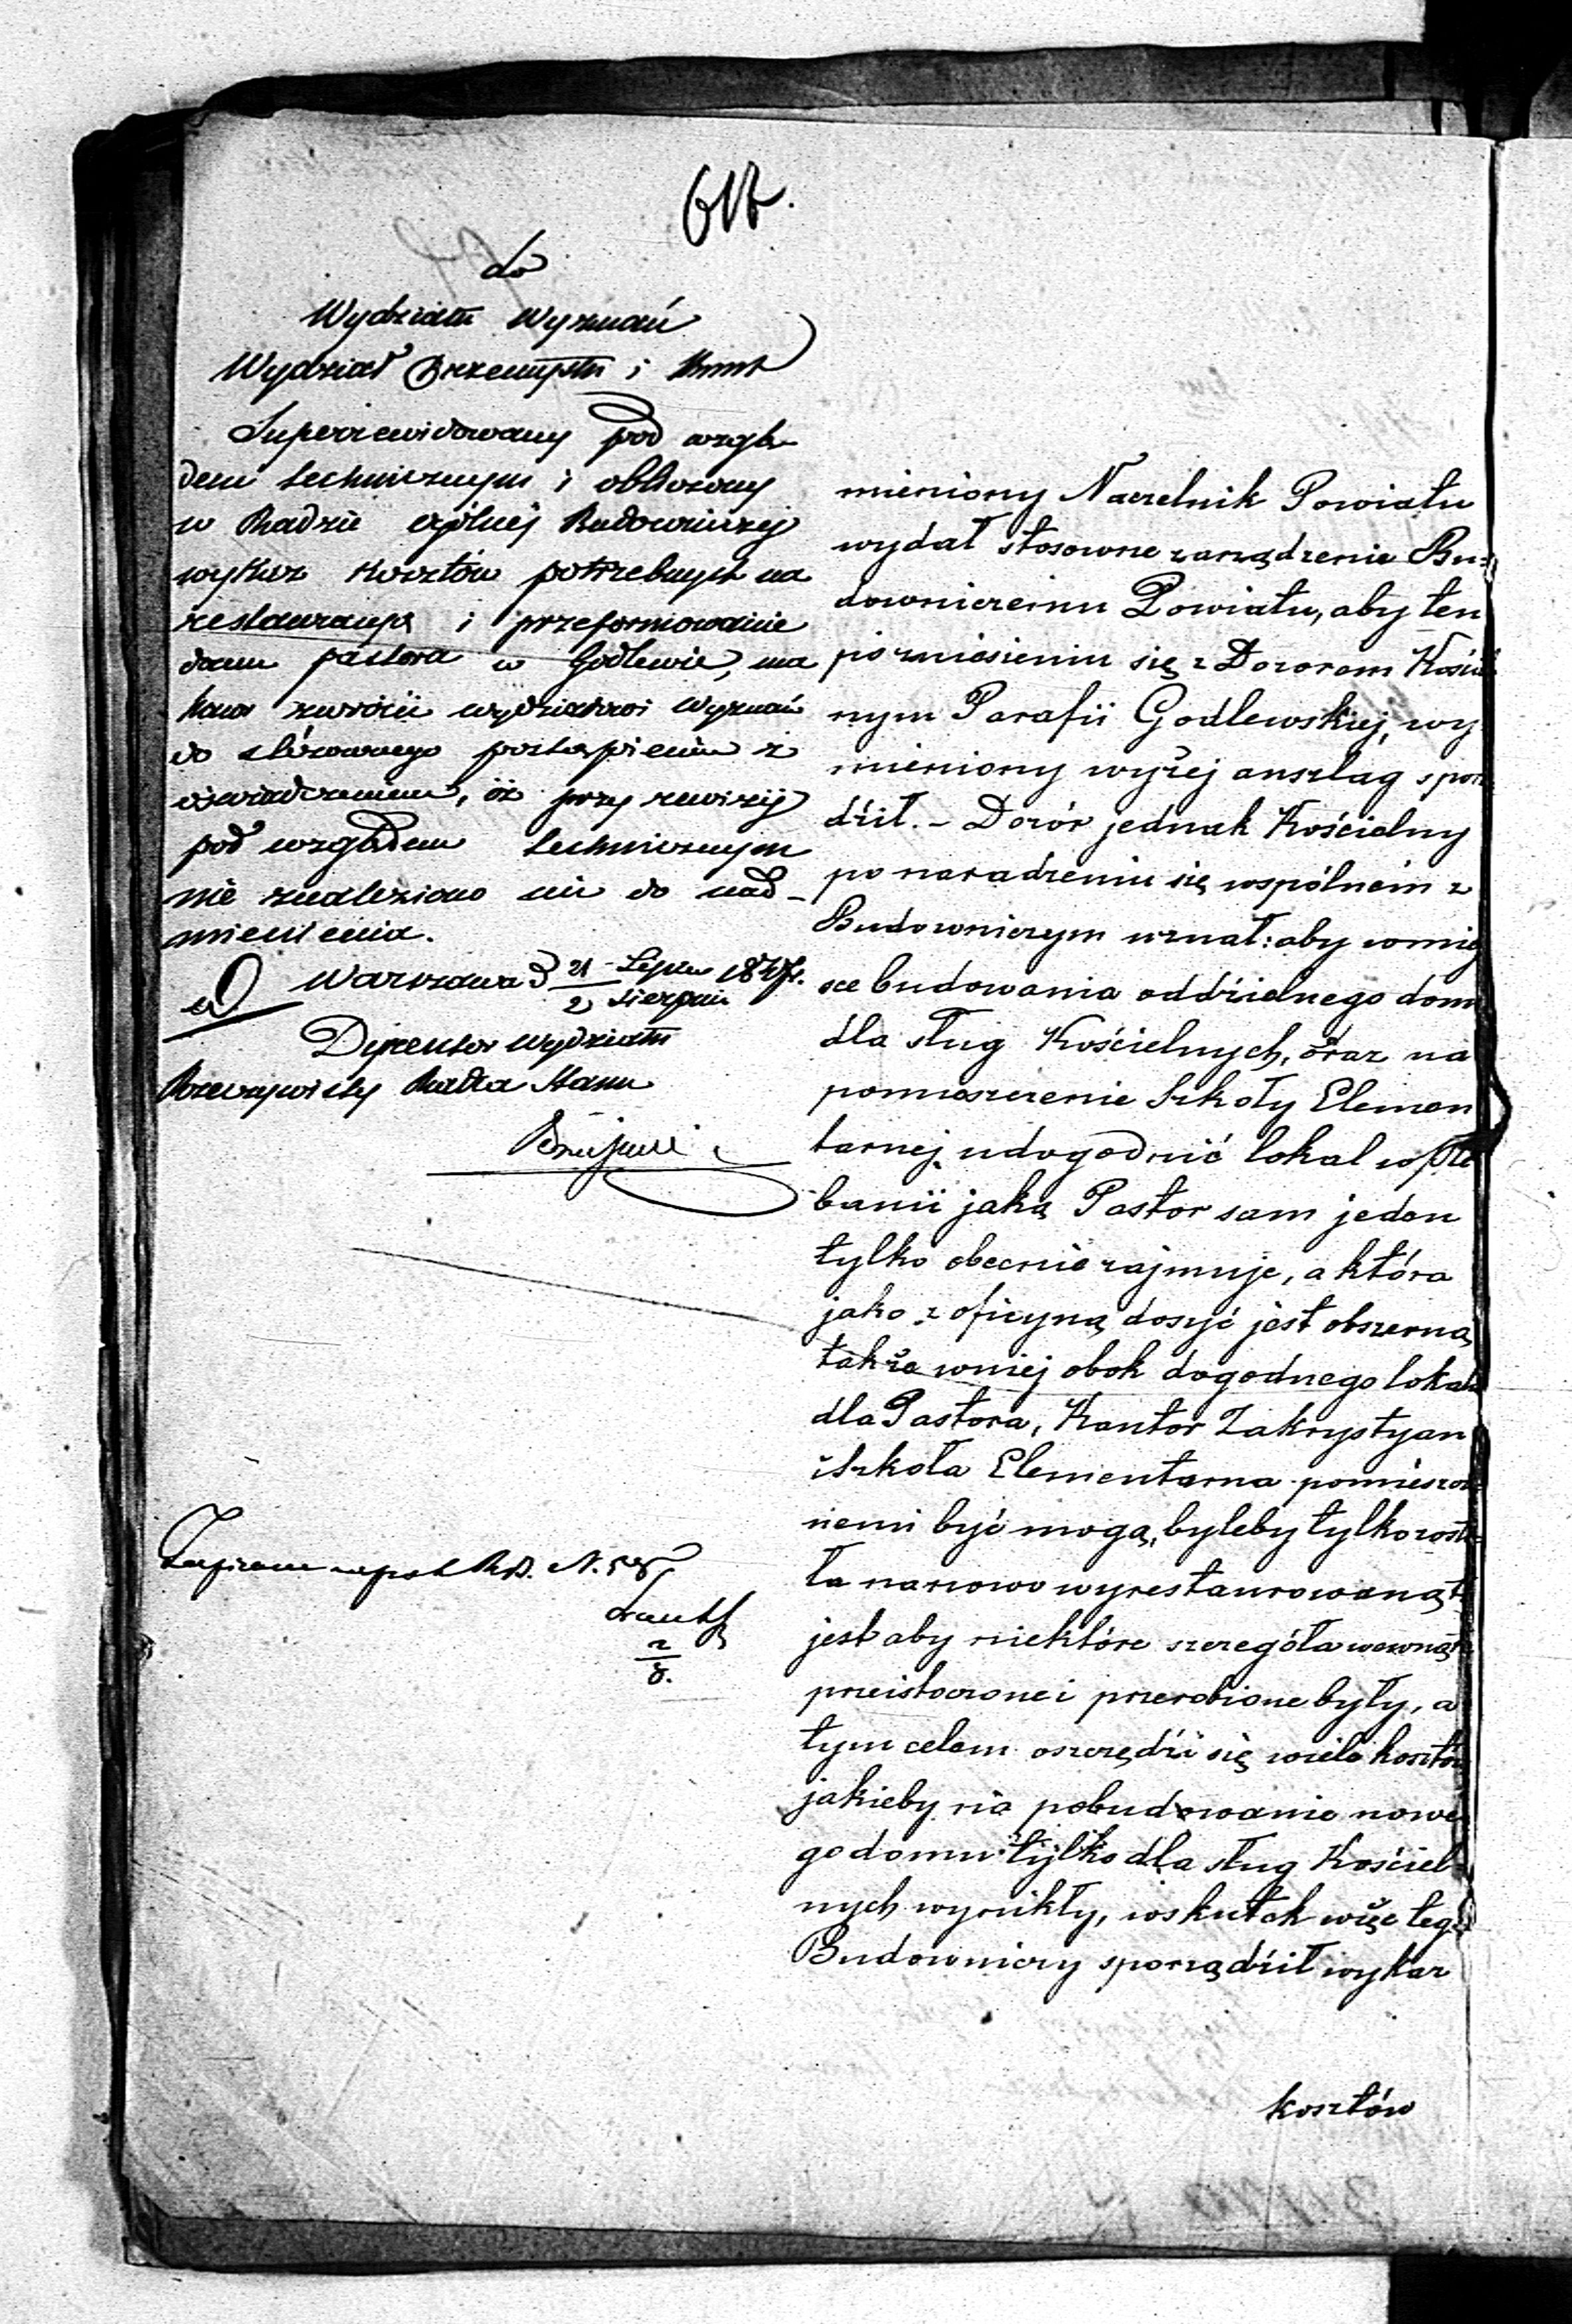 do
Wydziału Wyznań
Wydział Przemysłu i Kunst
Superrewidowany pod wzglę-
dem technicznym i obliczony
w Radzie ogólnej Budowniczej
wykaz kosztów potrzebnych na
restauracyę i przeformowanie
domu pastora w Godlewie, ma
honor zwrócić wydziałowi Wyznań
do stósownego postąpienia z
oświadczeniem, iż przy rewizyi
pod względem technicznym
nie znaleziono nic do nad-
mienienia.
Warszawa d 21 Lipca / 2 Sierpnia 1847 r.
Dyrektor Wydziału
Rzeczywisty Radca Stanu
N. 58
2/8.
mieniony Naczelnik Powiatu
wydał stosowne zarządzenie Bu=
downiczemu Powiatu, aby ten
po zniesieniu się z Dozorem Kościel
nym Parafii Godlewskiej, wy
mieniony wyżej anszlag sporz
dził. – Dozór jednak Kościelny
po naradzeniu się wspólnem z
Budowniczym uznał: aby w miej
sce budowania oddzielnego domu
dla sług Kościelnych, oraz na
pomieszczenie Szkoły Elemen
tarnej udogodnić lokal w ple
banii jaką Pastor sam jeden
tylko obecnie zajmuje, a która
jako z oficyną dosyć jest obszerną
także w niej obok dogodnego lokalu
dla Pastora, Kantor Zakrystyan
i Szkoła Elementarna pomieszczo
nemi być mogą, byleby tylko zosta
ła nanowo wyrestaurowaną t
jest aby niektóre szczegóła wewnątrz
przeistoczone i przerobione były, a
tym celem oszczędzi się wiele kosztów
jakieby na pobudowanie nowe
go domu tylko dla sług Kościel=
nych wynikły, wskutek więc tego
Budowniczy sporządził wykaz
kosztów